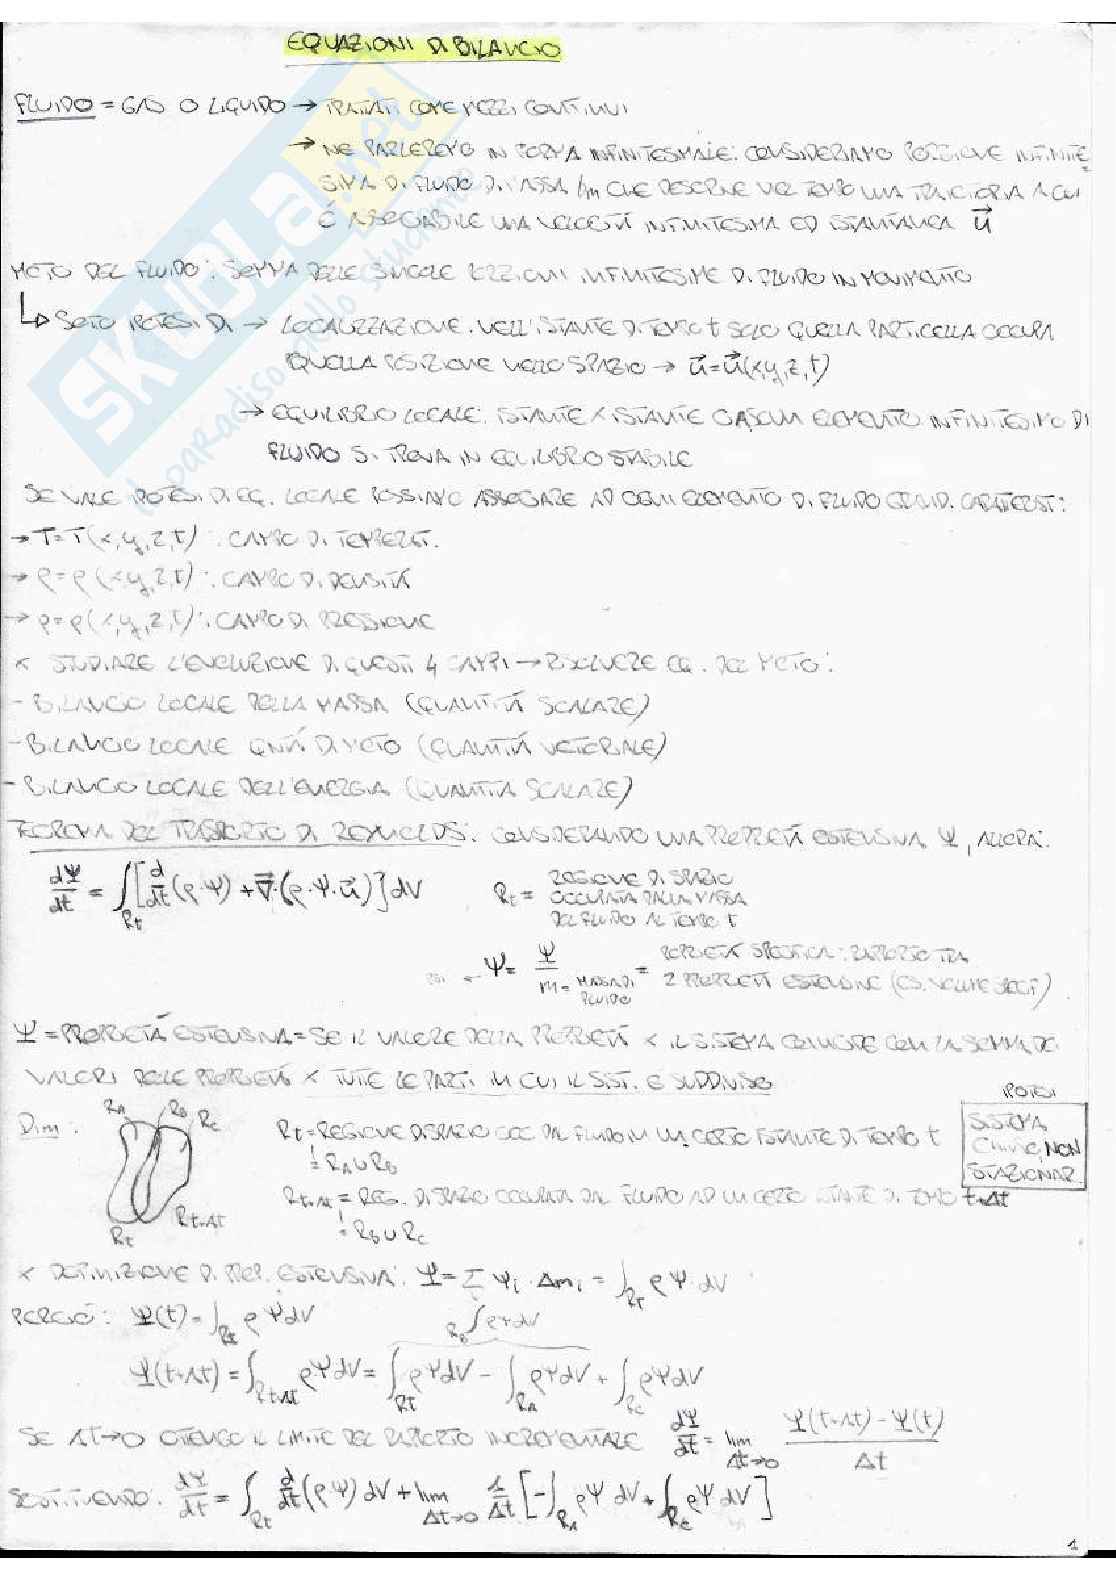 EQUAZIONI DI BILANCIO
FLUIDO = GAS O LIQUIDO → TRATTATI COME MEZZI CONTINUI
→ NE PARLEREMO IN FORMA INFINITESIMALE: CONSIDERIAMO PORZIONE INFINITE
SIMA DI FLUIDO DI MASSA CHE DESCRIVE NEL TEMPO UNA TRAIETTORIA A CUI
È ASSOCIABILE UNA VELOCITÀ INFINITESIMA ED ISTANTANEA u⃗
MOTO DEL FLUIDO: SOMMA DELLE SINGOLE PORZIONI INFINITESIME DI FLUIDO IN MOVIMENTO
SOTTO IPOTESI DI → LOCALIZZAZIONE. NELL'ISTANTE DI TEMPO t SOLO QUELLA PARTICELLA OCCUPA
QUELLA POSIZIONE NELLO SPAZIO → u⃗=u⃗(x,y,z,t)
→ EQUILIBRIO LOCALE: ISTANTE X ISTANTE CIASCUN ELEMENTO INFINITESIMO DI
FLUIDO SI TROVA IN EQUILIBRIO STABILE
SE VALE IPOTESI DI EQ. LOCALE POSSIAMO ASSEGNARE AD OGNI ELEMENTO DI FLUIDO GRAND. CARATTERIST:
→ T=T(x,y,z,t): CAMPO DI TEMPERAT.
→ ρ=ρ(x,y,z,t): CAMPO DI DENSITÀ
→ p=p(x,y,z,t): CAMPO DI PRESSIONE
X STUDIARE L'EVOLUZIONE DI QUESTI 4 CAMPI → RISOLVERE EQ. DEL MOTO:
- BILANCIO LOCALE DELLA MASSA (QUANTITÀ SCALARE)
- BILANCIO LOCALE QNTÀ DI MOTO (QUANTITÀ VETTORIALE)
- BILANCIO LOCALE DELL'ENERGIA (QUANTITÀ SCALARE)
TEOREMA DEL TRASPORTO DI REYNOLDS: CONSIDERANDO UNA PROPRIETÀ ESTENSIVA Ψ, ALLORA:
dΨ/dt = ∫Rt [d/dt(ρ·ψ) + ∇⃗·(ρ·ψ·u⃗)] dV
Rt = REGIONE DI SPAZIO
OCCUPATA DALLA MASSA
DEL FLUIDO AL TEMPO t
ψ = Ψ/m = PROPRIETÀ SPECIFICA: RAPPORTO TRA
m = MASSA DI FLUIDO
2 PROPRIETÀ ESTENSIVE (ES. VOLUME SPECIF)
Ψ = PROPRIETÀ ESTENSIVA = SE IL VALORE DELLA PROPRIETÀ X IL SISTEMA COINCIDE CON LA SOMMA DEI
VALORI DELLE PROPRIETÀ X TUTTE LE PARTI IN CUI IL SIST. È SUDDIVISO
IPOTESI
SISTEMA
CHIUSO, NON
STAZIONAR.
Dim:
RA RB RC
Rt Rt+Δt
Rt = REGIONE DI SPAZIO OCC DAL FLUIDO IN UN CERTO ISTANTE DI TEMPO t
= RA ∪ RB
Rt+Δt = REG. DI SPAZIO OCCUPATA DAL FLUIDO AD UN CERTO ISTANTE DI TEMPO t+Δt
= RB ∪ RC
X DEFINIZIONE DI PROP. ESTENSIVA: Ψ = Σ ψi · Δmi = ∫Rt ρψ dV
PERCIÒ: Ψ(t) = ∫Rt ρψ dV
∫RB ρψ dV
Ψ(t+Δt) = ∫Rt+Δt ρψ dV = ∫Rt ρψ dV - ∫RA ρψ dV + ∫RC ρψ dV
SE Δt→0 OTTENGO IL LIMITE DEL RAPPORTO INCREMENTALE dΨ/dt = lim Δt→0 (Ψ(t+Δt) - Ψ(t))/Δt
SOSTITUENDO: dΨ/dt = ∫Rt d/dt(ρψ) dV + lim Δt→0 1/Δt [-∫RA ρψ dV + ∫RC ρψ dV]
1
SKUOLA.net
il paradiso dello studente